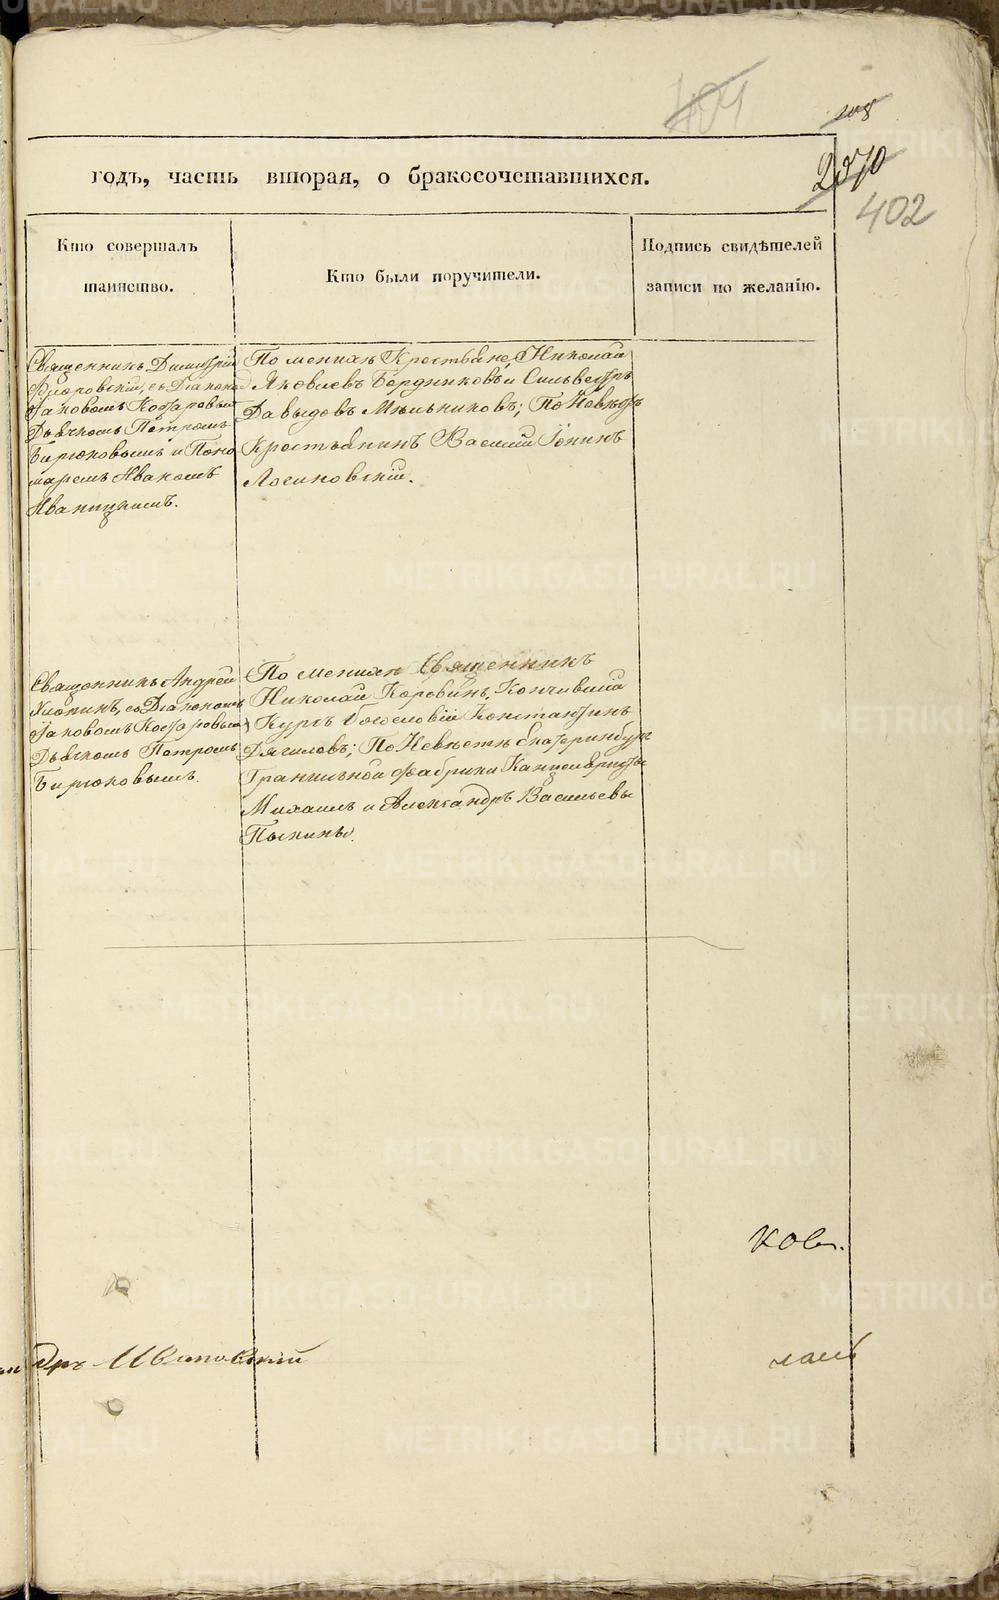 404
108
2570
402
годъ, часть вторая, о бракосочетавшихся.
Кто совершалъ
таинство.
Кто были поручители.
Подпись свидѣтелей
записи по желанію.
Священникъ Димитрій
съ Діакономъ
Іаковомъ Косаровымъ
Дьячкомъ Петромъ
Бирюковымъ и Поно
маремъ Иваномъ
Иваницкимъ.
По женихѣ Крестьяне, Николай
Яковлевъ Бердниковъ и Сильвестръ
Давыдовъ Мѣльниковъ; По Невѣстѣ
Крестьянинъ Василій Іонинъ
Лосиновскій.
Священникъ Андрей
Хлопинъ, съ Діакономъ
Іаковомъ Косаровымъ
Дьячкомъ Петромъ
Бирюковымъ.
По женихѣ Священникъ
Николай Коровинъ, Кончившій
Курсъ Богословія Константинъ
Дягилевъ; По Невѣстѣ Екатеринбург
Гранильной Фабрики Канцеляристы
Михаилъ и Александръ Васильевы
Пыпины
ков.
дръ Ивановскій
METRIKI.GASO-URAL.RU